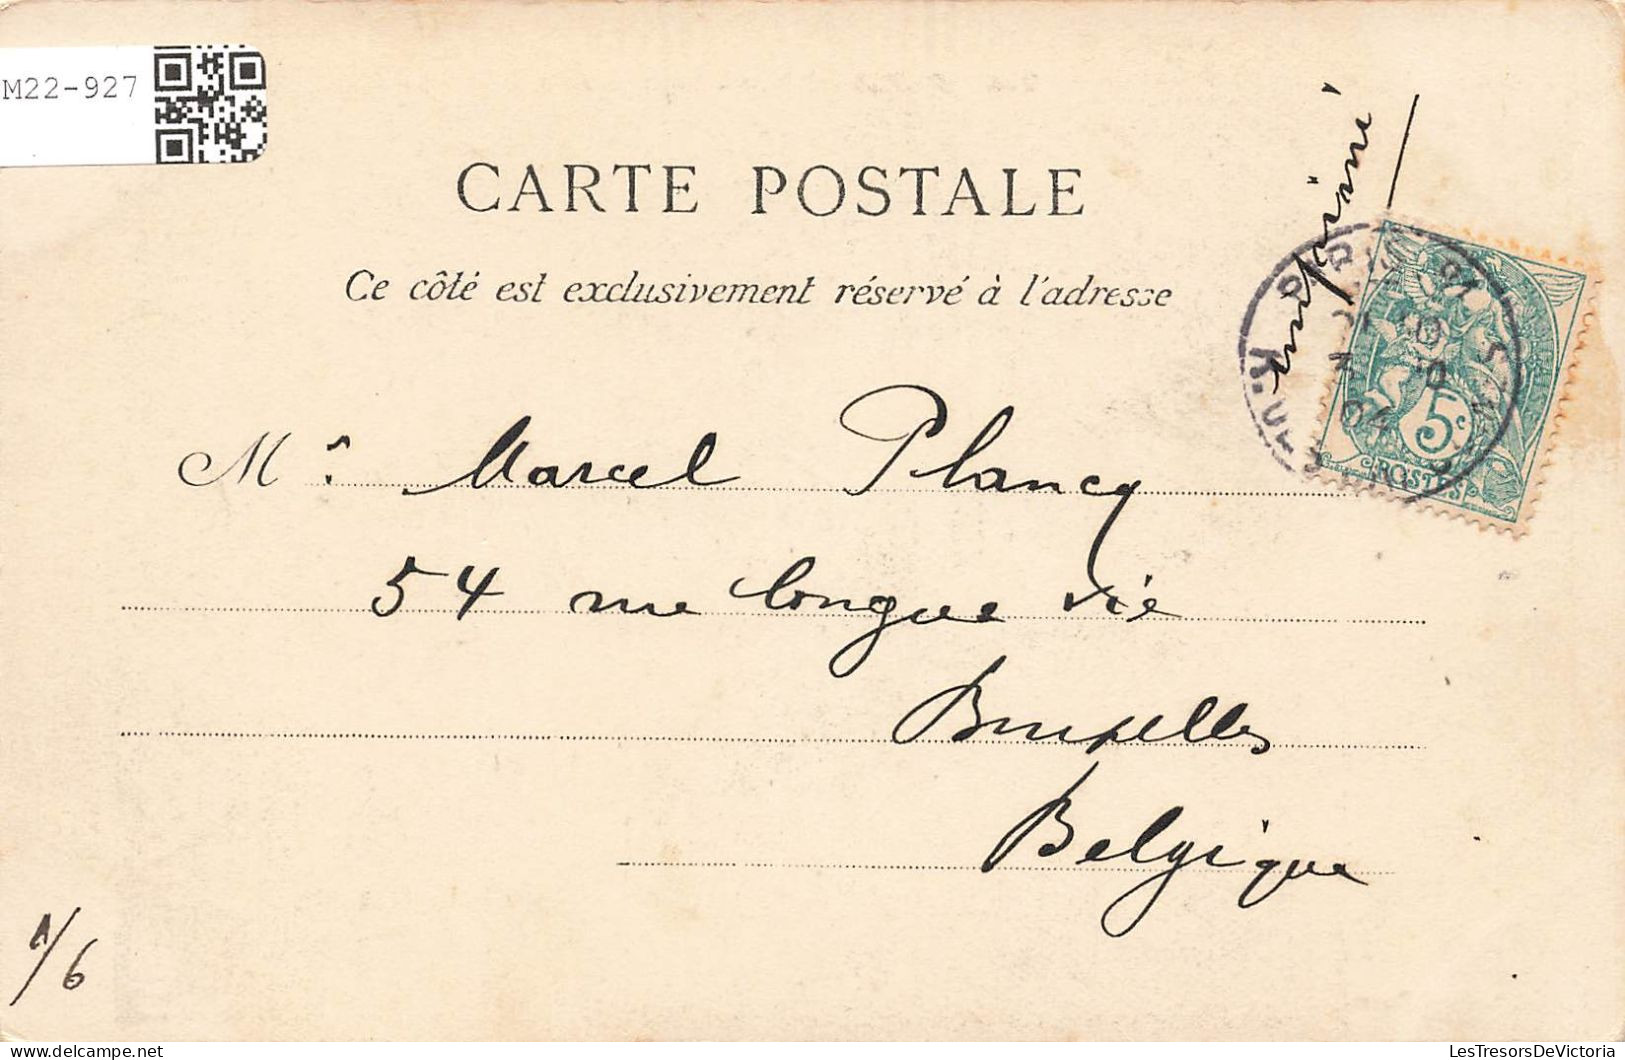 M22-927
CARTE POSTALE
Ce côté est exclusivement réservé à l'adresse
imprimé
PARIS
04
5c
POSTES
Mr Marcel Plancq
54 rue longue vie
Bruxelles
Belgique
1/6
LesTresorsDeVictoria
delcampe.net